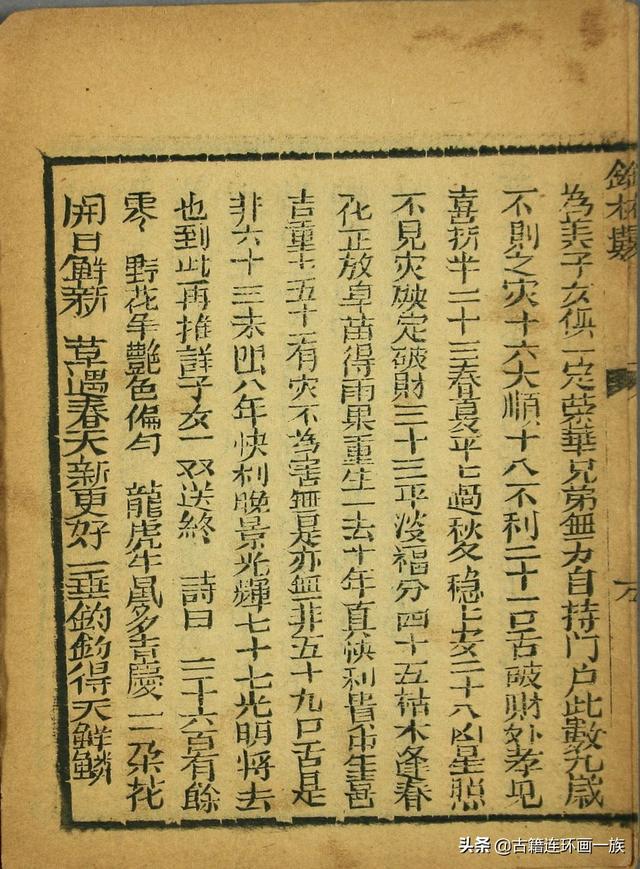 為美子女俱一定荣華兄弟無力自持门户此數九歲
不則之灾十六大順十八不利二十一口舌破財外孝见
喜折半二十三春夏平七過秋冬稳上安二十八凶星照
不見灾殃定破財三十三平淡福分四十五枯木逢春
化正放旱苗得雨果重生一去十年真快利
吉重七五十一有灾不為害無是亦無非五十九口舌是
非六十三未出八年快利晚景光輝七十七光明将去
也到此再推詳子女一双送終 詩曰 二十六百有餘
零 野花争艷色偏勻 龍虎牛鼠多吉慶 一二朵花
開日鮮新 草遇春天新更好 一垂釣釣得天鮮鱗
头条 @古籍连环画一族